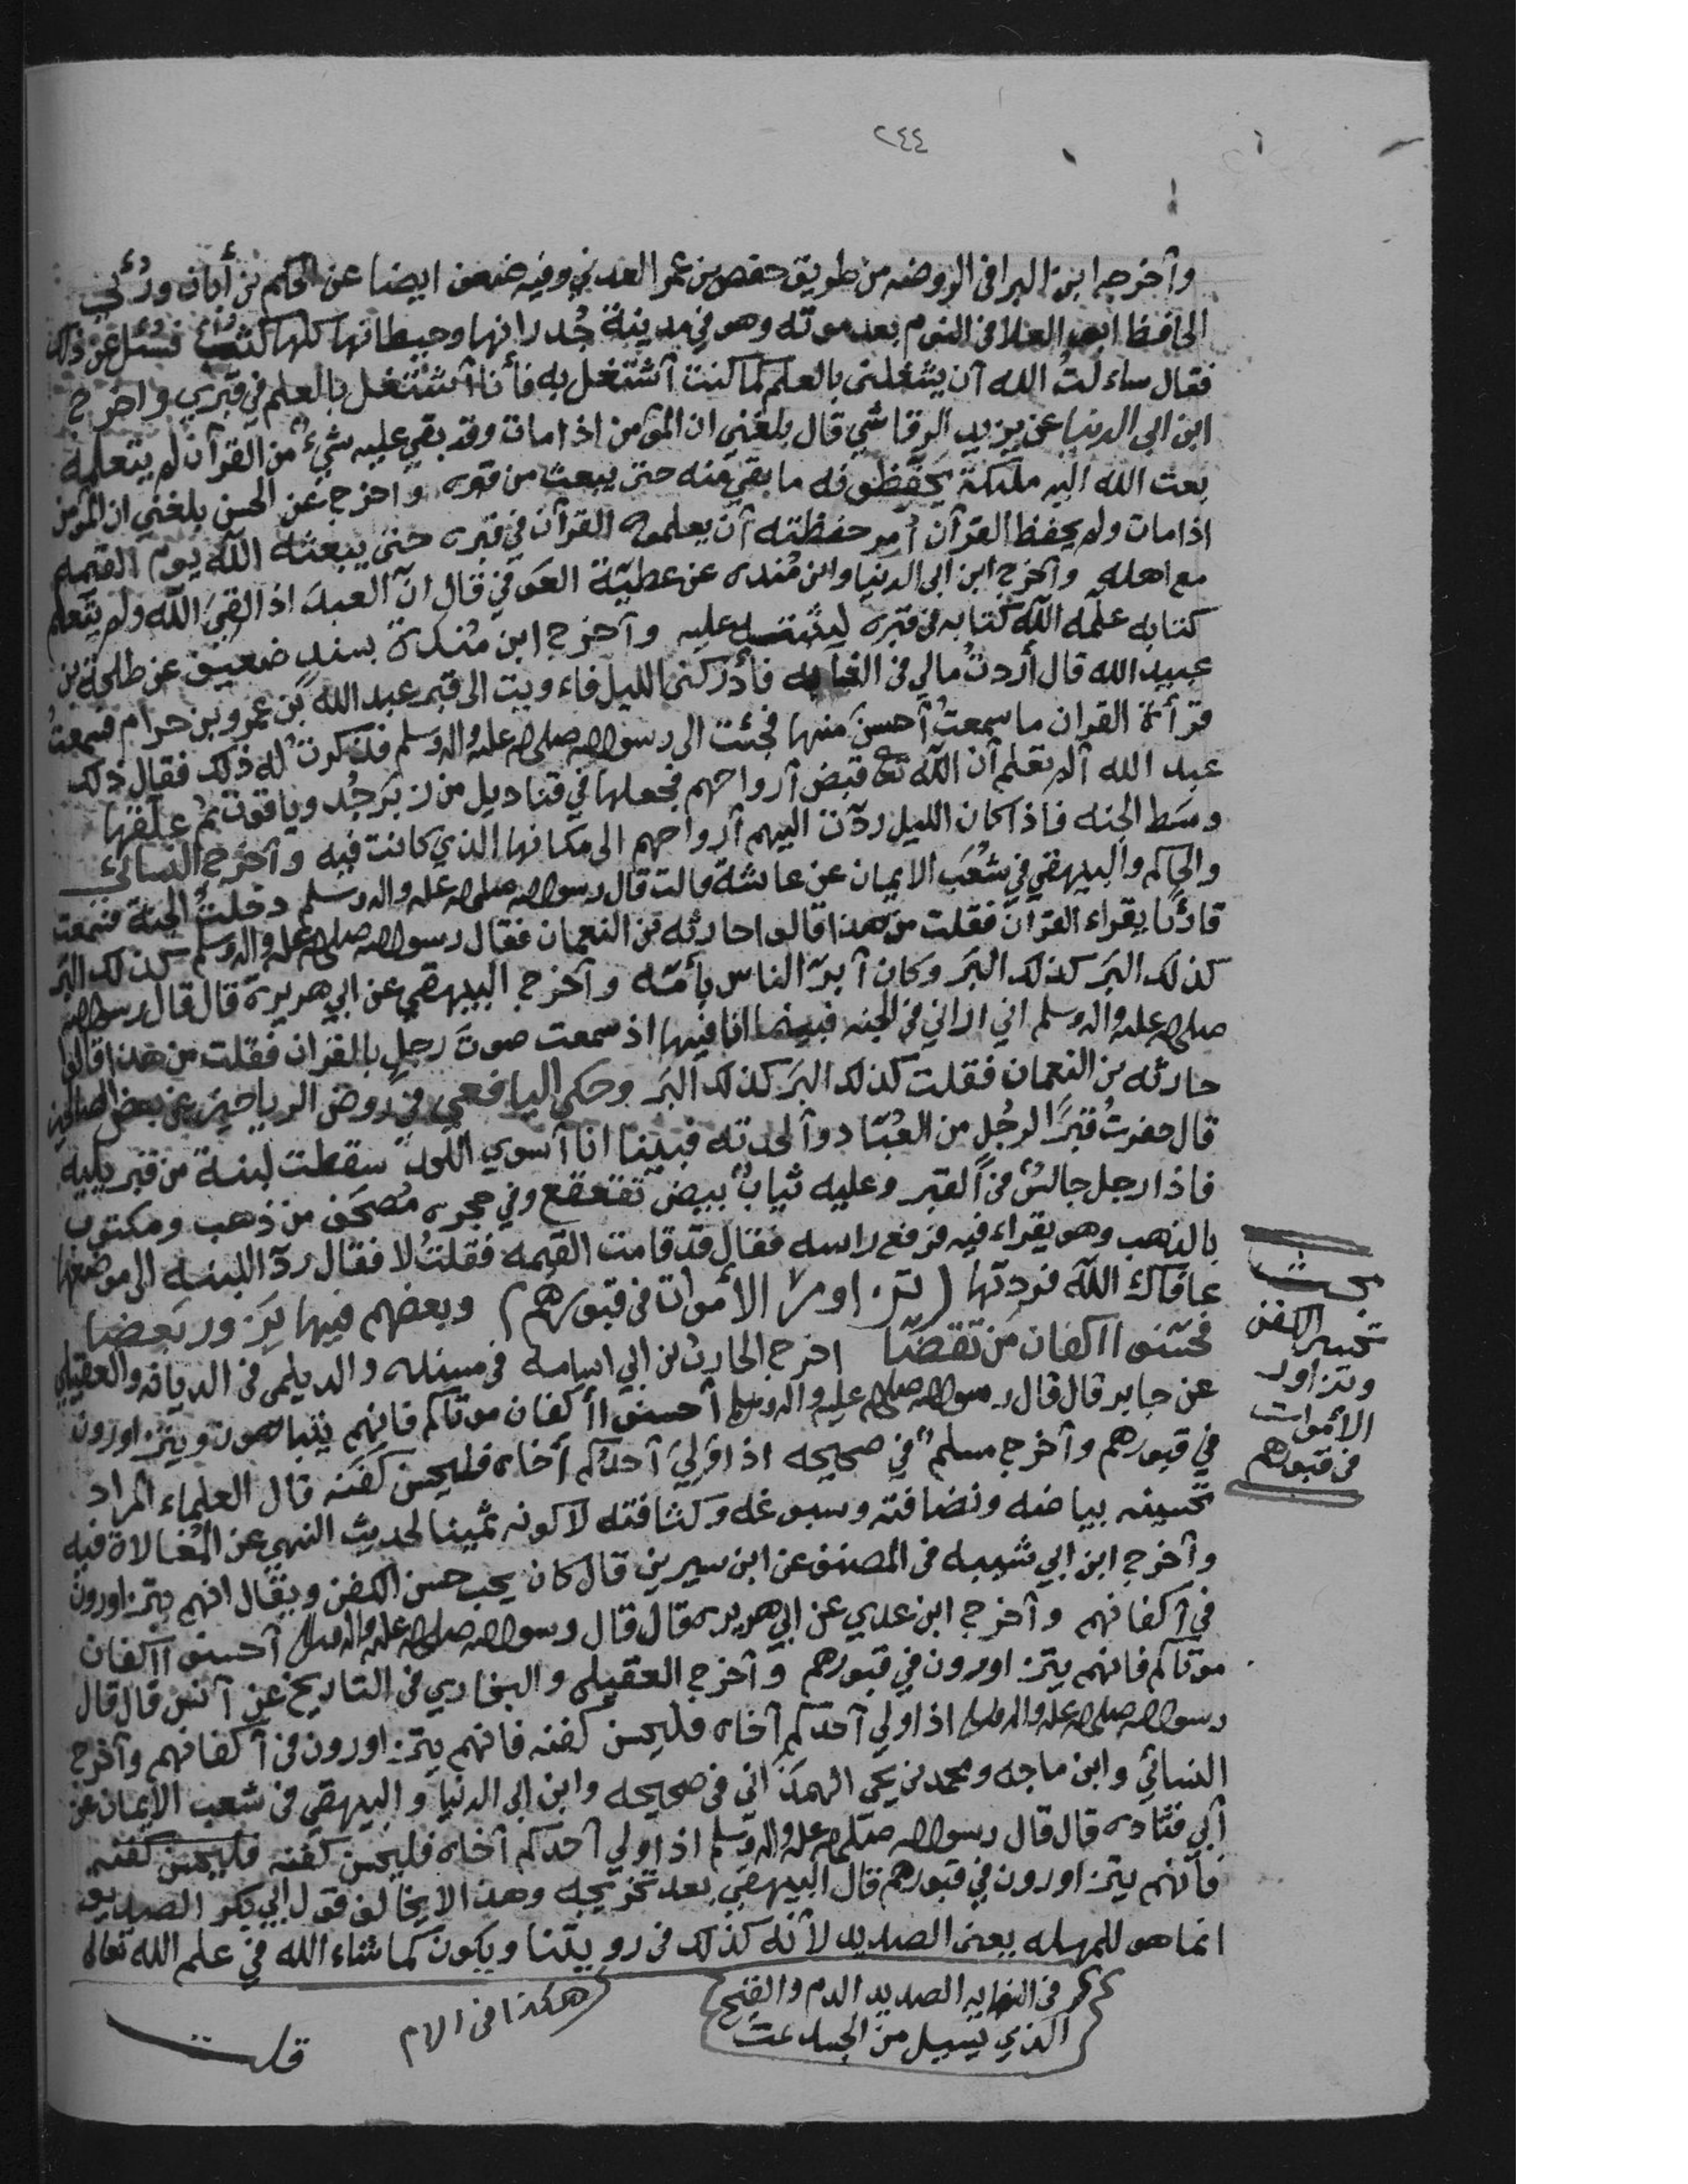 ٢٤٤
وأخرجه ابن البرا في الروضه من طريق حفص بن عمر العدني وفيه ضعف ايضا عن الحكم بن أبان ورُئي
الحافظ ابو العلا في النوم بعد موته وهو في مدينة جُدرانها وحيطانها كلها كتبٌ فسُئل عن ذلك
فقال ساءلتُ الله أن يشغلني بالعلم كما كنت أشتغل به فأنا أشتغل بالعلم في قبري واخرج
ابن ابي الدنيا عن يزيد الرقاشي قال بلغني ان المؤمن اذا مات وقد بقي عليه شيءٌ من القرآن لم يتعلمه
بعث الله اليه ملئكة يحفظونه ما بقي منه حتى يبعث من قبره واخرج عن الحسن بلغني ان المؤمن
اذا مات ولم يحفظ القرآن أُمر حفظته أن يعلموه القرآن في قبره حتى يبعثه الله يوم القيمه
مع اهله وأخرج ابن ابي الدنيا وابن مُنده عن عطيّة العَوفي قال انّ العبدَ اذا لقيَ الله ولم يتعلم
كتابه علّمه الله كتابه في قبره ليثيبه عليه وأخرج ابن مُندة بسندٍ ضعيف عن طلحة بن
عبيد الله قال أردتُ مالي في الغابه فأدركني الليل فاءويت الى قبر عبد الله بن عمرو بن حرام فسمعتُ
قرأة القران ما سمعتُ أحسنَ منها فجئت الى رسول الله صلى الله عليه واله وسلم فذكرتُ له ذلك فقال ذلك
عبد الله ألم تعلم أن الله تع قبض أرواحهم فجعلها في قناديل من زبرجُد وياقوت ثم علّقها
وسَط الجنه فاذا كان الليل ردّت اليهم أرواحهم الى مكانها الذي كانت فيه وأخرج النسائي
والحاكم والبيهقي في شُعَب الايمان عن عائشة قالت قال رسول الله صلى الله عليه واله وسلم دخلتُ الجنة فسمعت
قارئًا يقراء القرآن فقلت من هذا قالوا حارثه بن النعمان فقال رسول الله صلى الله عليه واله وسلم كذلك البر
كذلك البَر كذلك البَر وكان أبرّ الناس بأمّه وأخرج البيهقي عن ابي هريرة قال قال رسول الله
صلى الله عليه واله وسلم اني اراني في الجنه فبينما انا فيها اذ سمعت صوتَ رجلٍ بالقران فقلت من هذا قالوا
حارثه بن النعمان فقلت كذلك البَر كذلك البَر وحكى اليافعي في روض الرياحين عن بعض الصالحين
قال حفرتُ قبرًا لرجُلٍ من العُبّاد وألحدته فبينا انا أسوي اللحد سقطت لبنة من قبر يليه
فاذا رجل جالسٌ في القبر وعليه ثيابٌ بيض تقعقع وفي حجره مُصحَف من ذهب ومكتوب
بالذهب وهو يقراء فيه فرفع راسه فقال قد قامت القيمه فقلتُ لا فقال ردّ اللبنه الى موضعها
عافاك الله فرددتها (تزاور الأموات في قبورهم) وبعضهم فيها يَزور بَعضا
فحسّنوا اكفان من تقضّا اخرج الحارث بن ابي اسامه في مسنده والديلمي في الديانه والعقيلي
عن جابر قال قال رسول الله صلى الله عليه واله وسلم أحسنوا أكفان موتاكم فانهم يتباهون ويتزاورون
في قبورهم وأخرج مسلم في صحيحه اذا وَليَ أحدكم أخاه فليحسن كفَنه قال العلماء المراد
تحسينه بياضه ونضافته وسبوغه وكثافته لا كونه ثمينا لحديث النهي عن المُغالاة فيه
وأخرج ابن ابي شيبه في المصنف عن ابن سيرين قال كان يحب حسن الكفن ويقال انهم يتزاورون
في أكفانهم وأخرج ابن عدي عن ابي هريره قال قال رسول الله صلى الله عليه واله وسلم أحسنوا أكفان
موتاكم فانهم يتزاورون في قبورهم وأخرج العقيلي والبخاري في التاريخ عن أنس قال قال
رسول الله صلى الله عليه واله وسلم اذا ولي أحدكم أخاه فليحسن كفنه فانهم يتزاورون في أكفانهم وأخرج
النسائي وابن ماجه ومحمد بن يحي الهمَذاني في صحيحه وابن ابي الدنيا والبيهقي في شعب الايمان عن
أبي قتاده قال قال رسول الله صلى الله عليه واله وسلم اذا ولي أحدكم أخاه فليحسن كفنه فليحسن كفنه
فانهم يتزاورون في قبورهم قال البيهقي بعد تخريجه وهذا لا يخالف قول ابي بكر الصديق
انما هو للمهله يعني الصديد لأنه كذلك في رويتنا ويكون كما شاء الله في علم الله تعالى
في النهايه الصديد الدم والقيح
الذي يسيل من الجسد تمت
هكذا في الام
قلت
بحث
تحسين الكفن
وتزاور
الأموات
في قبورهم